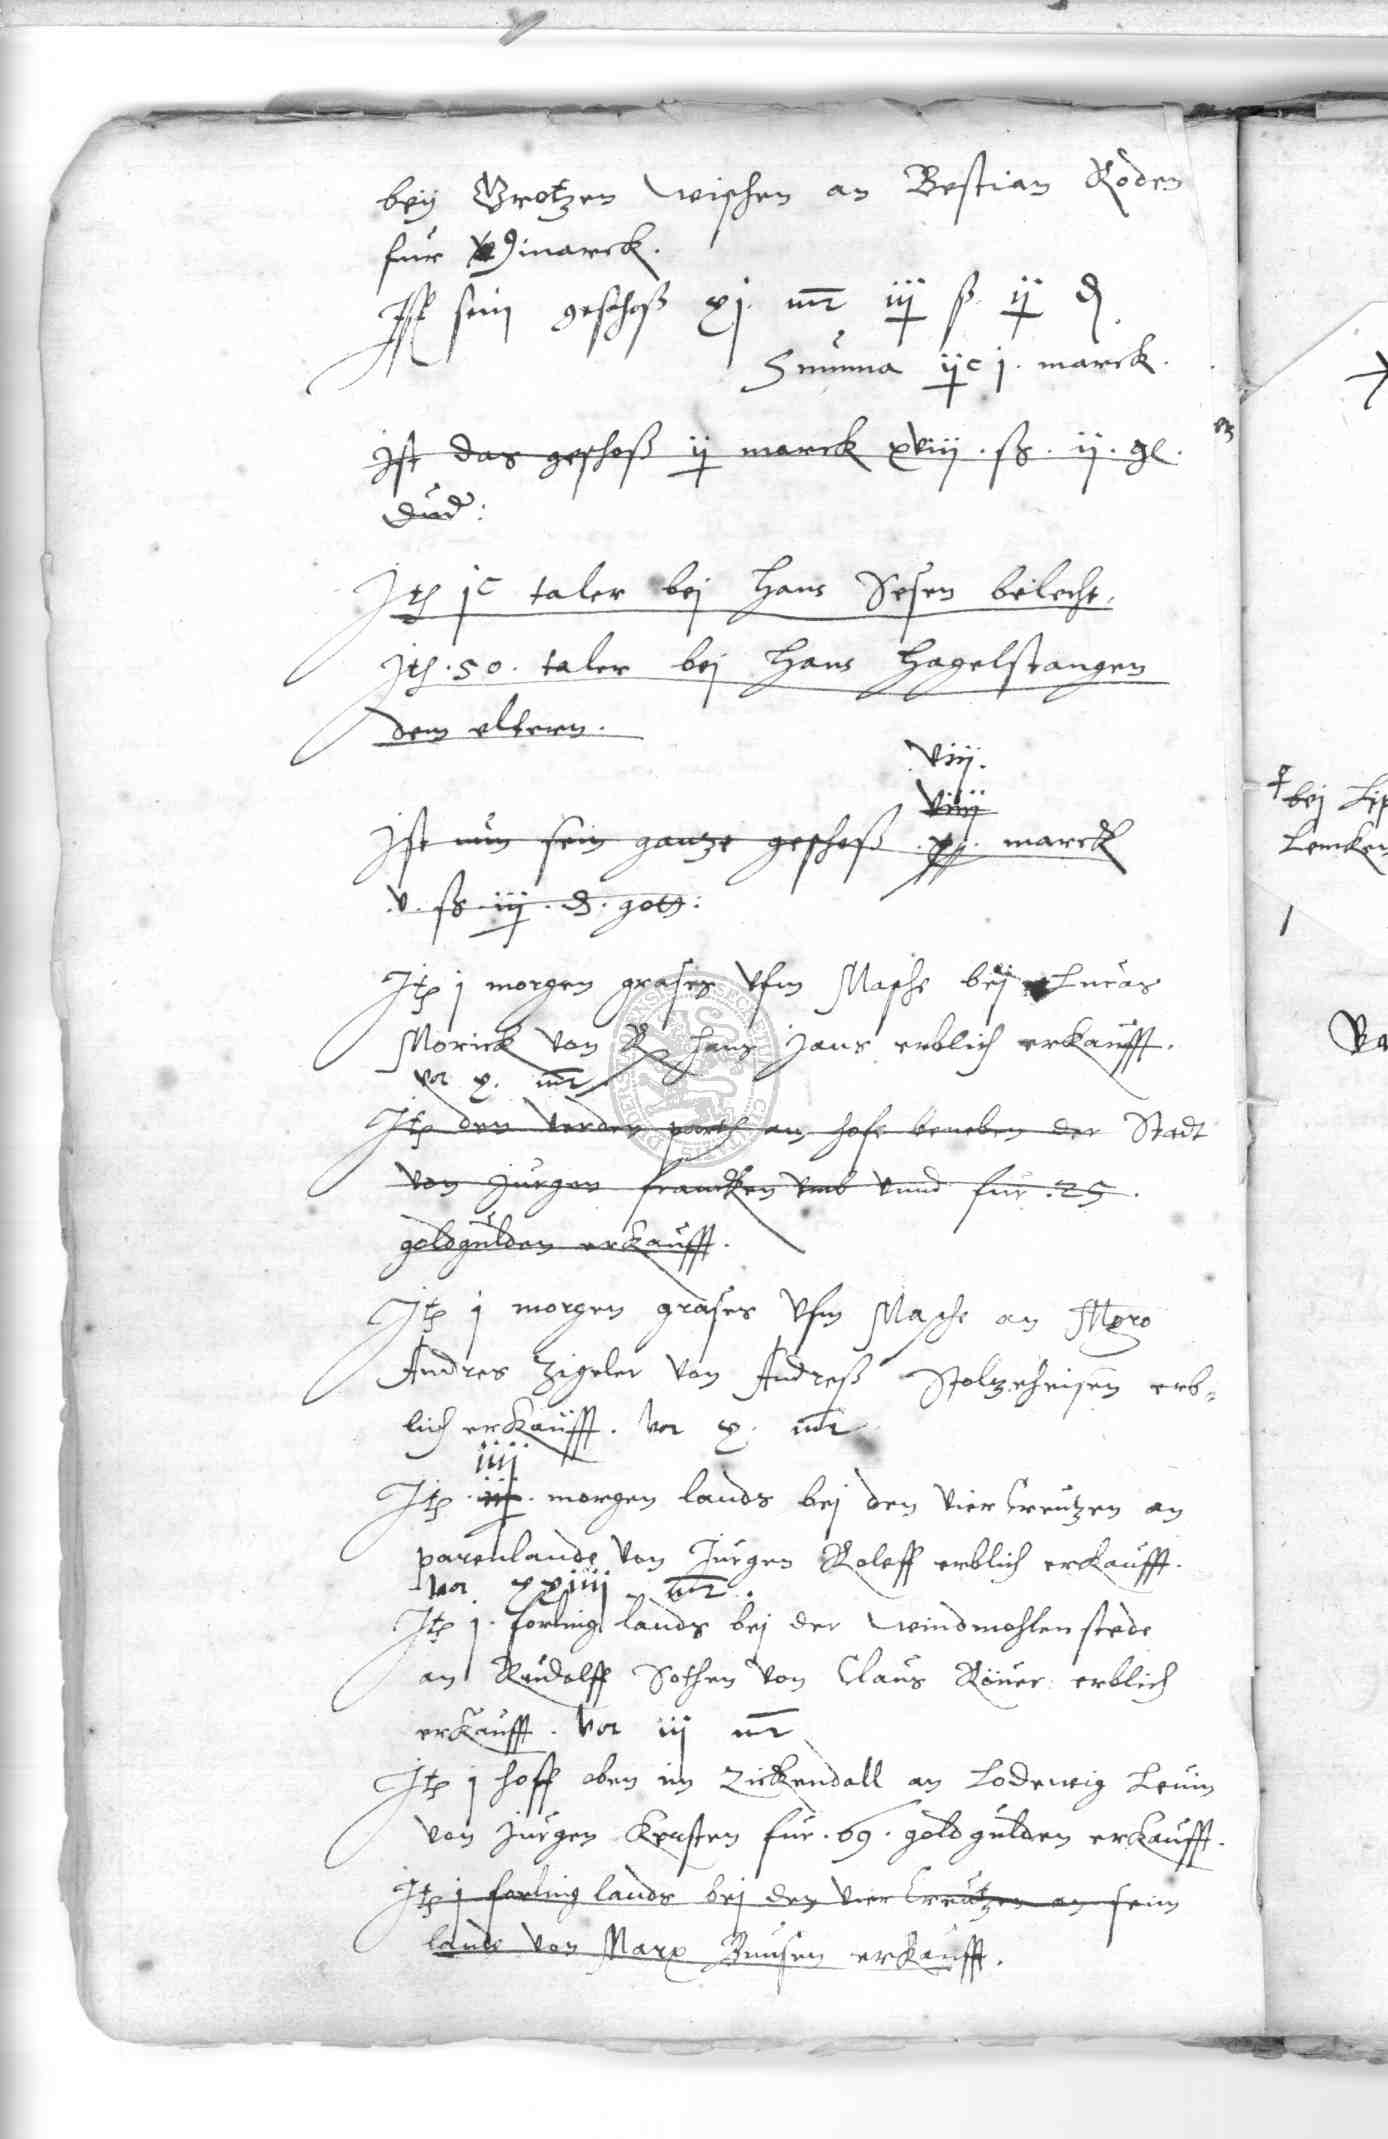 beij Grotzen wischen an Bestian Roden
fur marck.
Ist sein geschoß xj. mr iij ß ij d
Summa ijc j. marck.
Ist das geschoß ij marck xviij. ß. ij. gl.
Itm jc taler bej Hans Sesen belecht.
Itm .50. taler bej Hans Hagelstangen
dem eltern.
viij.
Ist nun sein gantze geschoß marck
v. ß. iij. d. gott:
Itm j morgen grases vfm Masche beij Lucas
Morick von Hans Jans erblich erkaufft.
vor x. mr
Itm den verden parth an hofe beneben der Stadt
von Jurgen francken vmb vnnd fur .25.
goldgulden erkaufft.
Itm j morgen grases vfm Masche an
Andres Zigeler von Andreß Stoltzeheisen erb-
lich erkaufft. vor x. mr
iiij
Itm morgen lands bej den vier Creutzen an
parenlande von Jurgen Roleff erblich erkaufft.
vor xxiiij mr.
Itm j. forling lands bej der windmohlen stede
an Rudolff Sothen von Claus Röuer erblich
erkaufft. vor iij mr
Itm j hoff oben im Zickendall an Lodewig Leuin
von Jurgen Kersten fur .69. goldgulden erkaufft.
Itm j forling lands bej den vier Creutzen an seim
lande von Marx erkaufft.
bej
Lemken